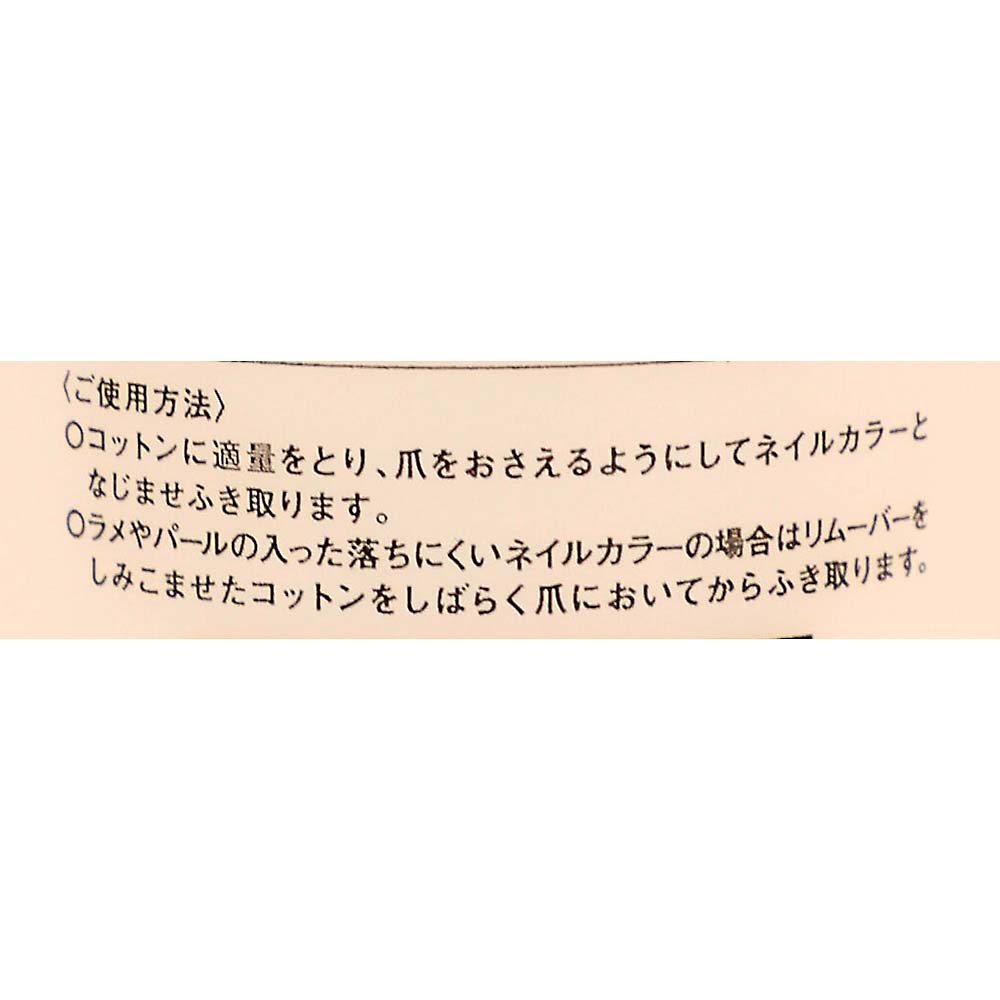 〈ご使用方法〉
○コットンに適量をとり、爪をおさえるようにしてネイルカラーと
なじませふき取ります。
○ラメやパールの入った落ちにくいネイルカラーの場合はリムーバーを
しみこませたコットンをしばらく爪においてからふき取ります。